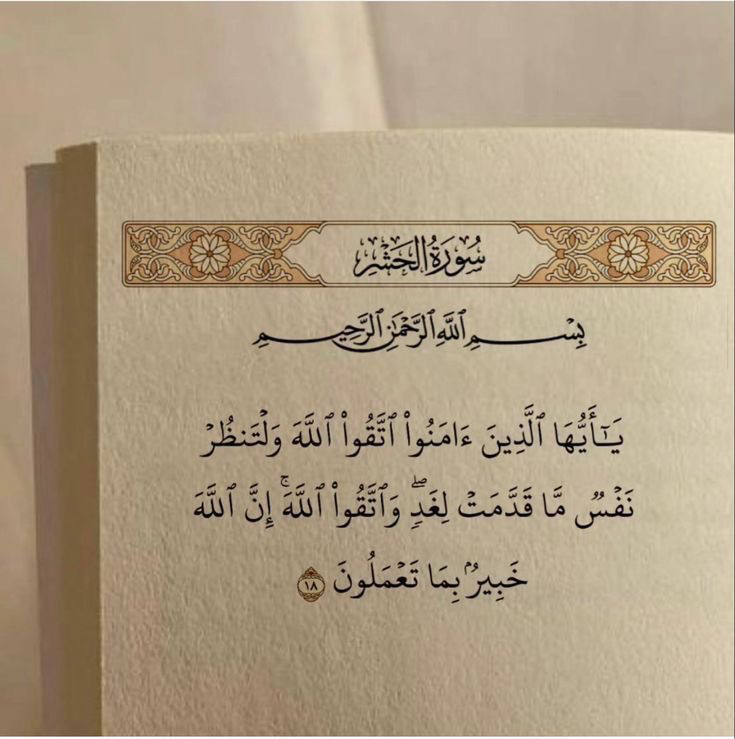 سُورَةُ الحَشْرِ
بِسْمِ ٱللَّهِ ٱلرَّحْمَٰنِ ٱلرَّحِيمِ
يَـٰٓأَيُّهَا ٱلَّذِينَ ءَامَنُوا۟ ٱتَّقُوا۟ ٱللَّهَ وَلْتَنظُرْ
نَفْسٌ مَّا قَدَّمَتْ لِغَدٍ ۖ وَٱتَّقُوا۟ ٱللَّهَ ۚ إِنَّ ٱللَّهَ
خَبِيرٌۢ بِمَا تَعْمَلُونَ ١٨